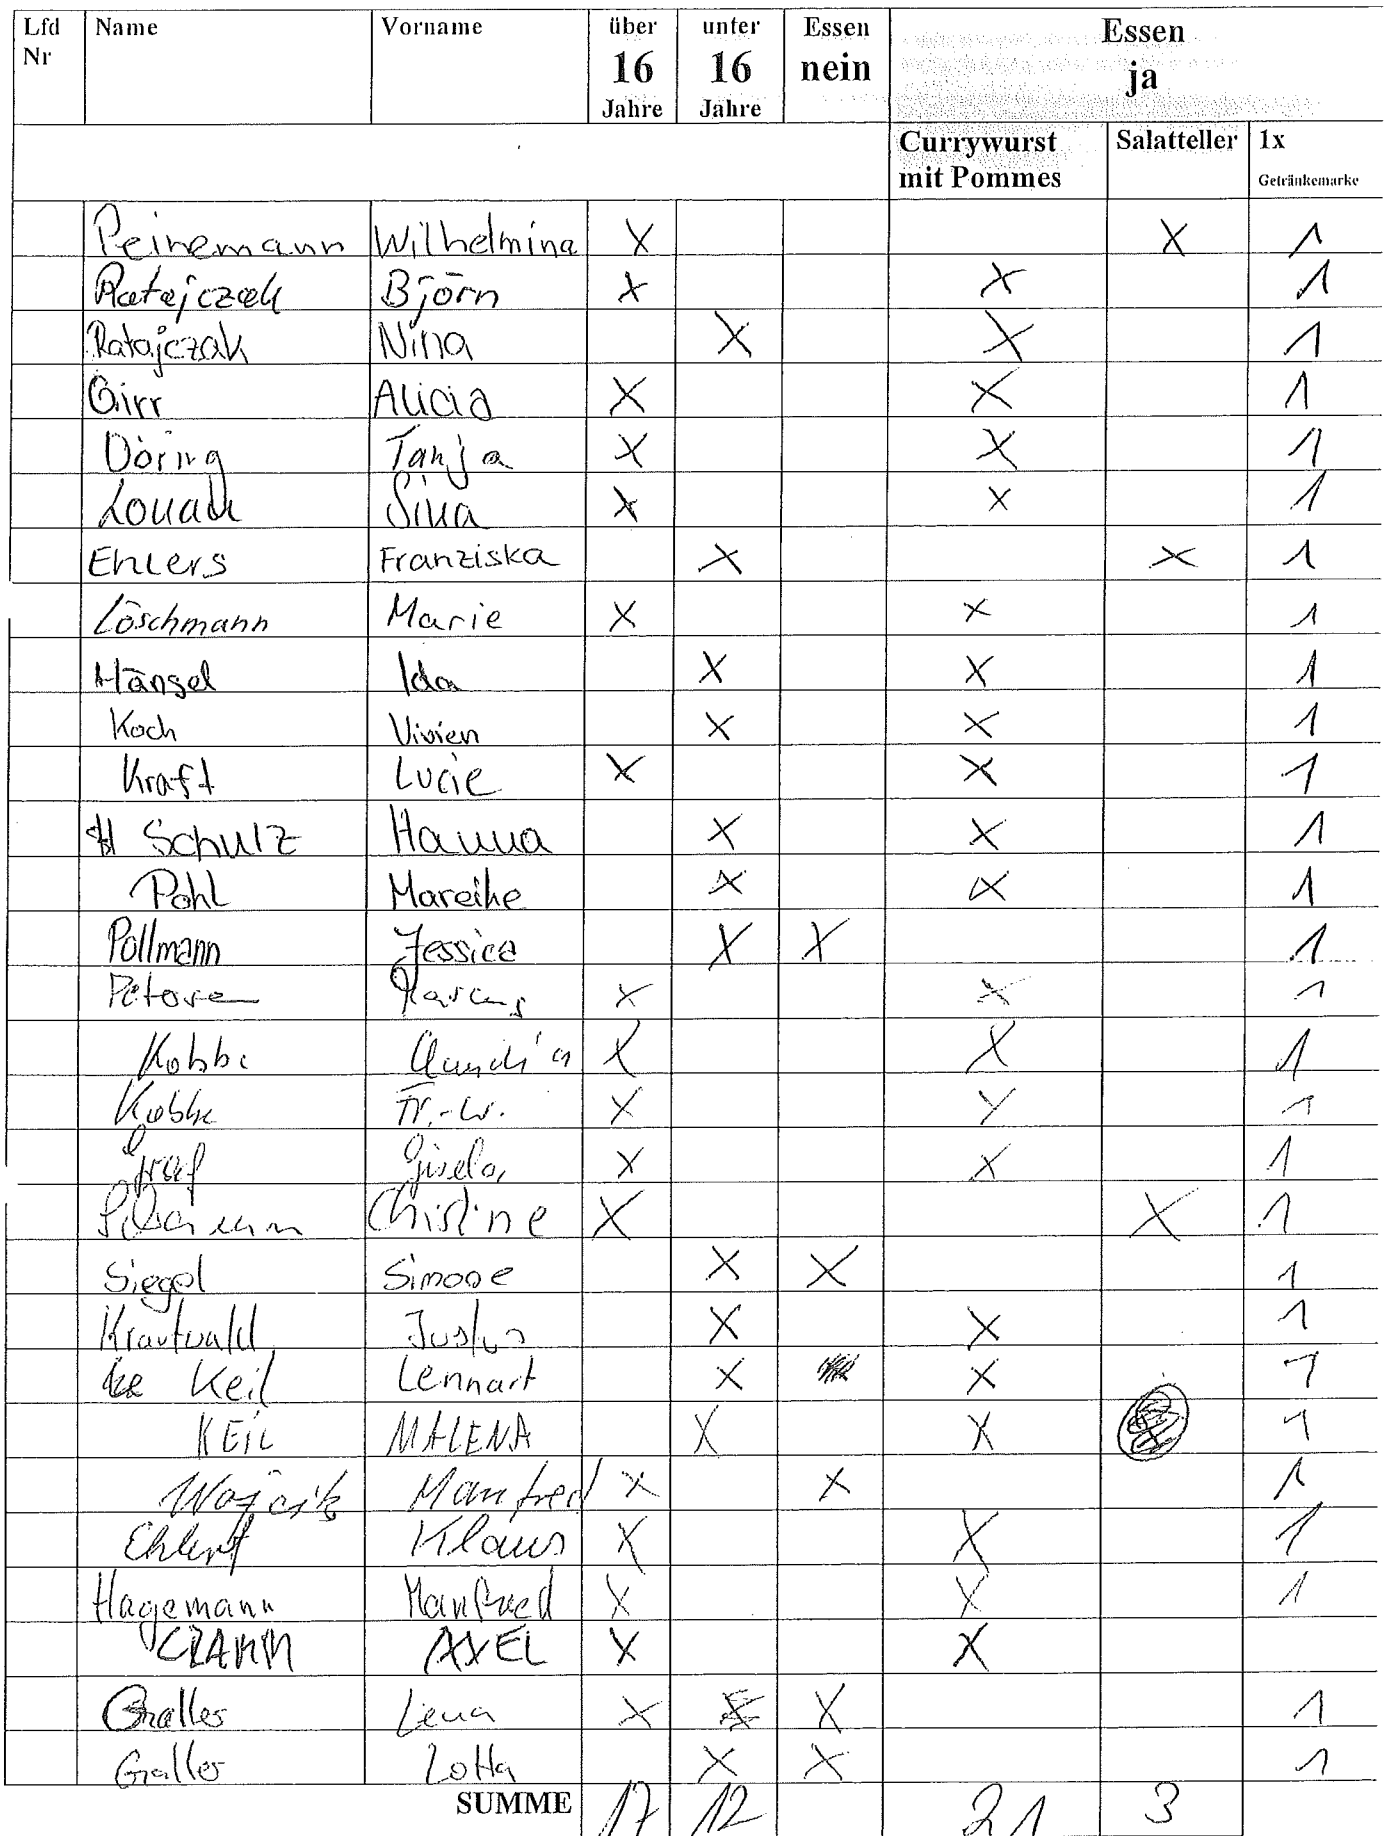 Lfd Nr Name Vorname über 16 Jahre unter 16 Jahre Essen nein Essen ja
Currywurst mit Pommes Salatteller 1x Getränkemarke
Peinemann Wilhelmina X X 1
Ratajczak Björn X X 1
Ratajczak Nina X X 1
Girr Alicia X X 1
Döring Tanja X X 1
Sina X X 1
Ehlers Franziska X X 1
Löschmann Marie X X 1
Hänsel Ida X X 1
Koch Vivien X X 1
Kraft Lucie X X 1
Schulz Hanna X X 1
Pohl Mareike X X 1
Pollmann Jessica X X 1
X X 1
Kobbe Claudia X X 1
Kobbe Fr.-W. X X 1
Graf Gisela X X 1
Christine X X 1
Siegel Simone X X 1
Krautwald Justus X X 1
Keil Lennart X X 1
KEIL MALENA X X 1
Wojcik Manfred X X 1
Ehlert Klaus X X 1
Hagemann Manfred X X 1
AXEL X X
Galler Lena X X 1
Galler Lotta X X 1
SUMME 17 12 21 3